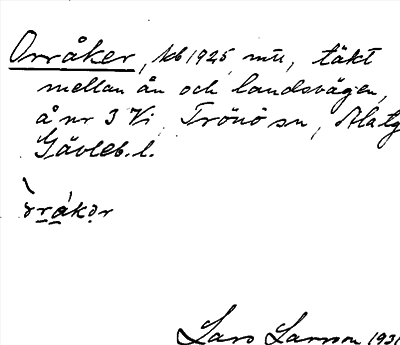 Orråker, kb 1925 mtr, täkt
mellan ån och landsvägen,
å nr 3 Vi, Trönö sn, Ala tg
Gävleb. l.
òrákər
Lars Larsson 1931